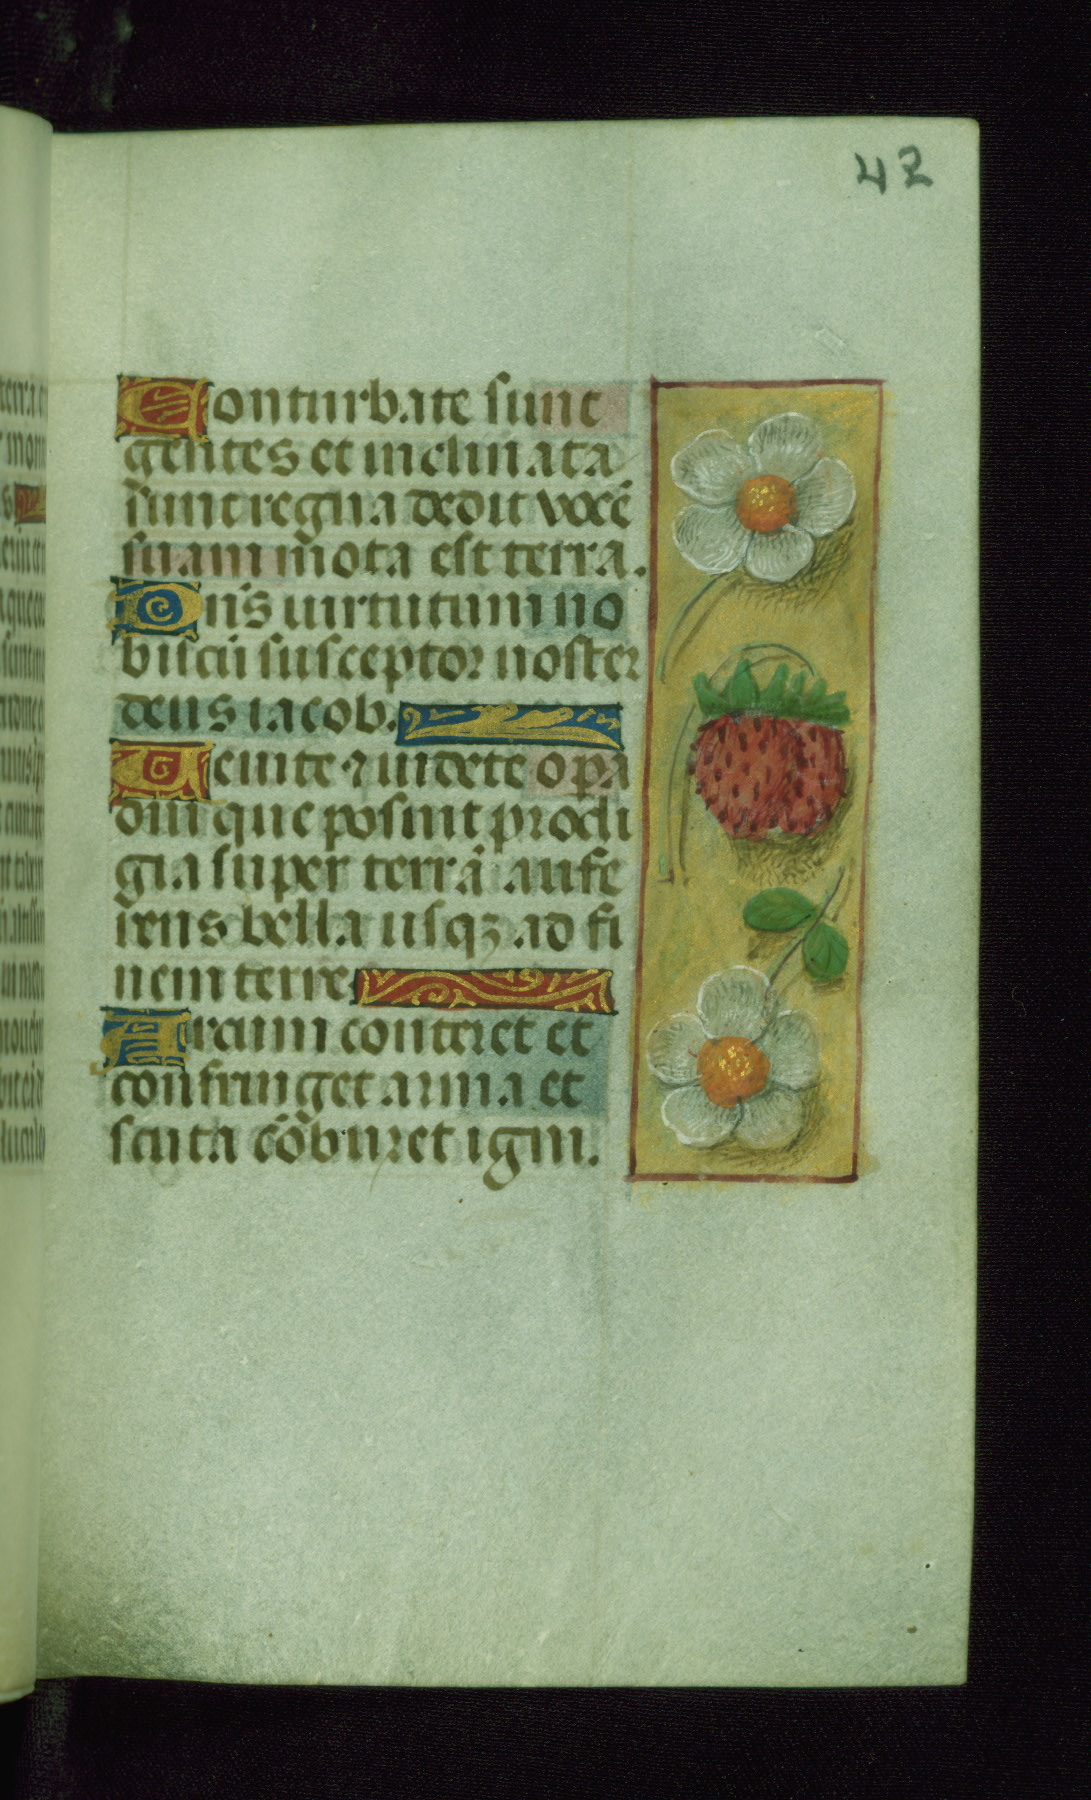 42
Conturbate sunt
gentes et inclinata
sunt regna dedit vocē
suam mota est terra.
Dn̄s uirtutum no
biscū susceptor noster
deus iacob.
Uenite ⁊ uidete opa
dn̄i que posuit prodi
gia super terrā aufe
rens bella usqꝫ ad fi
nem terre
Arcum conteret et
confringet arma et
scuta cōburet igni.